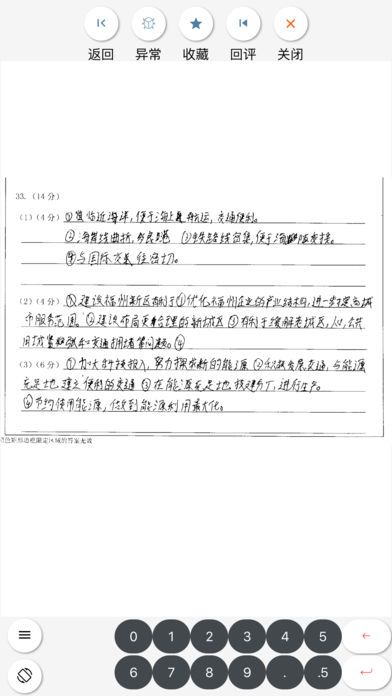 返回 异常 收藏 回评 关闭
33.（14 分）
（1）（4 分）①临近海洋，便于海上航运，交通便利。
②海岸线曲折，多良港 ③铁路线密集，便于海陆联接。
④与国际交往密切。
（2）（4 分）建设福州新区有利于①优化福州企业的产业结构，进一步提高城
市服务范围 ②建设布局更合理的新城区 ③有利于缓解老城区，人口，公共
用地紧缺和交通拥堵等问题。④
（3）（6 分）①加大科技投入，努力探求新的能源 ②积极发展交通，与能源
充足地建立便利的交通 ③在能源充足地投建工厂，进行生产。
④节约使用能源，做到能源利用最大化。
色矩形边框限定区域的答案无效
0 1 2 3 4 5
6 7 8 9 . .5